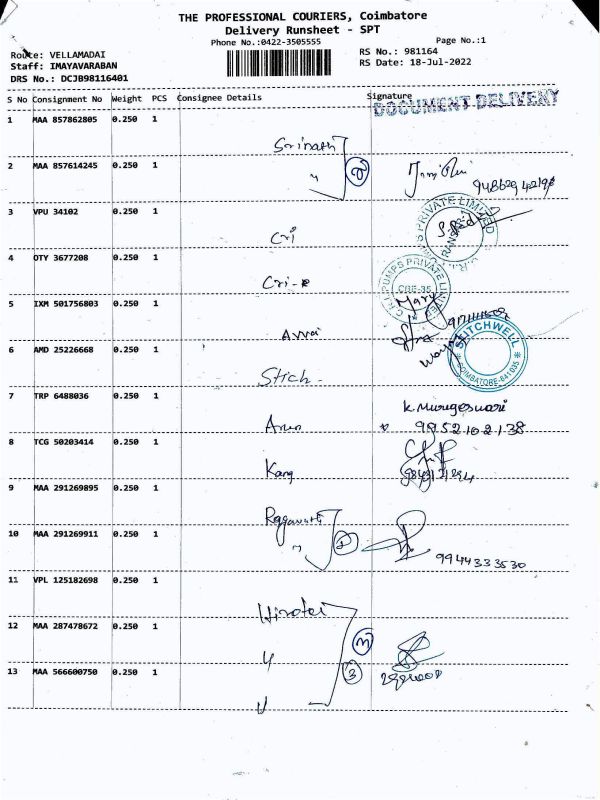 THE PROFESSIONAL COURIERS, Coimbatore
Delivery Runsheet - SPT
Phone No.:0422-3505555
Page No.:1
Route: VELLAMADAI
RS No.: 981164
Staff: IMAYAVARABAN
RS Date: 18-Jul-2022
DRS No.: DCJB98116401
S No Consignment No Weight PCS Consignee Details Signature
DOCUMENT DELIVERY
1 MAA 857862805 0.250 1
Srinath
2 MAA 857614245 0.250 1
2
3 VPU 34102 0.250 1
PRIVATE LIMITED
Cri
4 OTY 3677208 0.250 1
C.R.I. PUMPS PRIVATE LIMITED
CBE-35
Mary
Cri-
5 IXM 501756803 0.250 1
Avvai
6 AMD 25226668 0.250 1
STITCHWELL
COIMBATORE-641035
Stich-
7 TRP 6488036 0.250 1
K. Murugeswari
Arun 9952102138
8 TCG 50203414 0.250 1
Kang
9 MAA 291269895 0.250 1
10 MAA 291269911 0.250 1
2
9944333530
11 VPL 125182698 0.250 1
12 MAA 287478672 0.250 1
13 MAA 566600750 0.250 1
3